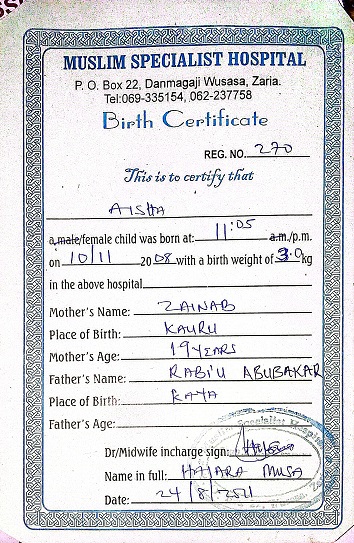 MUSLIM SPECIALIST HOSPITAL
P. O. Box 22, Danmagaji Wusasa, Zaria.
Tel:069-335154, 062-237758
Birth Certificate
REG. NO. 270
This is to certify that
AISHA
a male/female child was born at: 11:05 a.m./p.m.
on 10/11 2008 with a birth weight of 3.0 kg
in the above hospital
Mother's Name: ZAINAB
Place of Birth: KAURU
Mother's Age: 19 YEARS
Father's Name: RABI'U ABUBAKAR
Place of Birth: KAYA
Father's Age:
Dr/Midwife incharge sign:
Name in full: HAJARA MUSA
Date: 24/8/2021